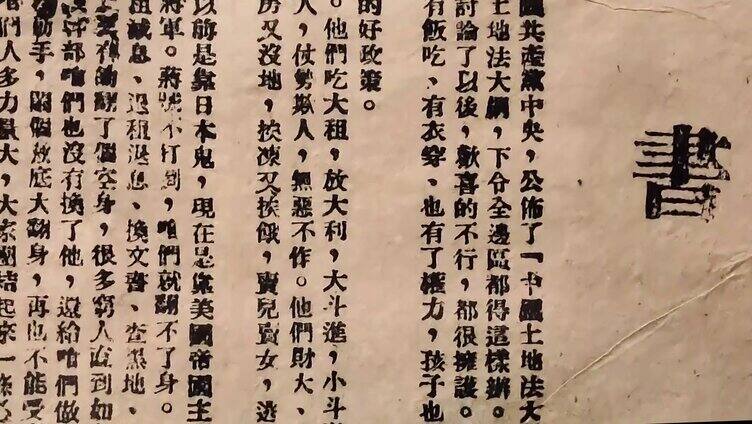 書
國共產黨中央，公佈了「中國土地法大
土地法大綱，下分全邊區都得這樣辦。
討論了以後，歡喜的不行，都很擁護。
有飯吃，有衣穿，也有了權力，孩子也
的好政策。
。他們吃大租，放大利，大斗進，小斗
人，仗勢欺人，無惡不作。他們財大、
房又沒地，挨凍又挨餓，賣兒賣女，逃
以前是靠日本鬼，現在是靠美國帝國主
將軍。蔣賊不打到，咱們就翻不了身。
租減息、退租退息、換文書、查黑地、
有的翻了個空身，很多窮人直到如
幹部咱們也沒有換了他，還給咱們做
動手，鬧個澈底大翻身，再也不能受
咱們人多力量大，大家團結起來一條心